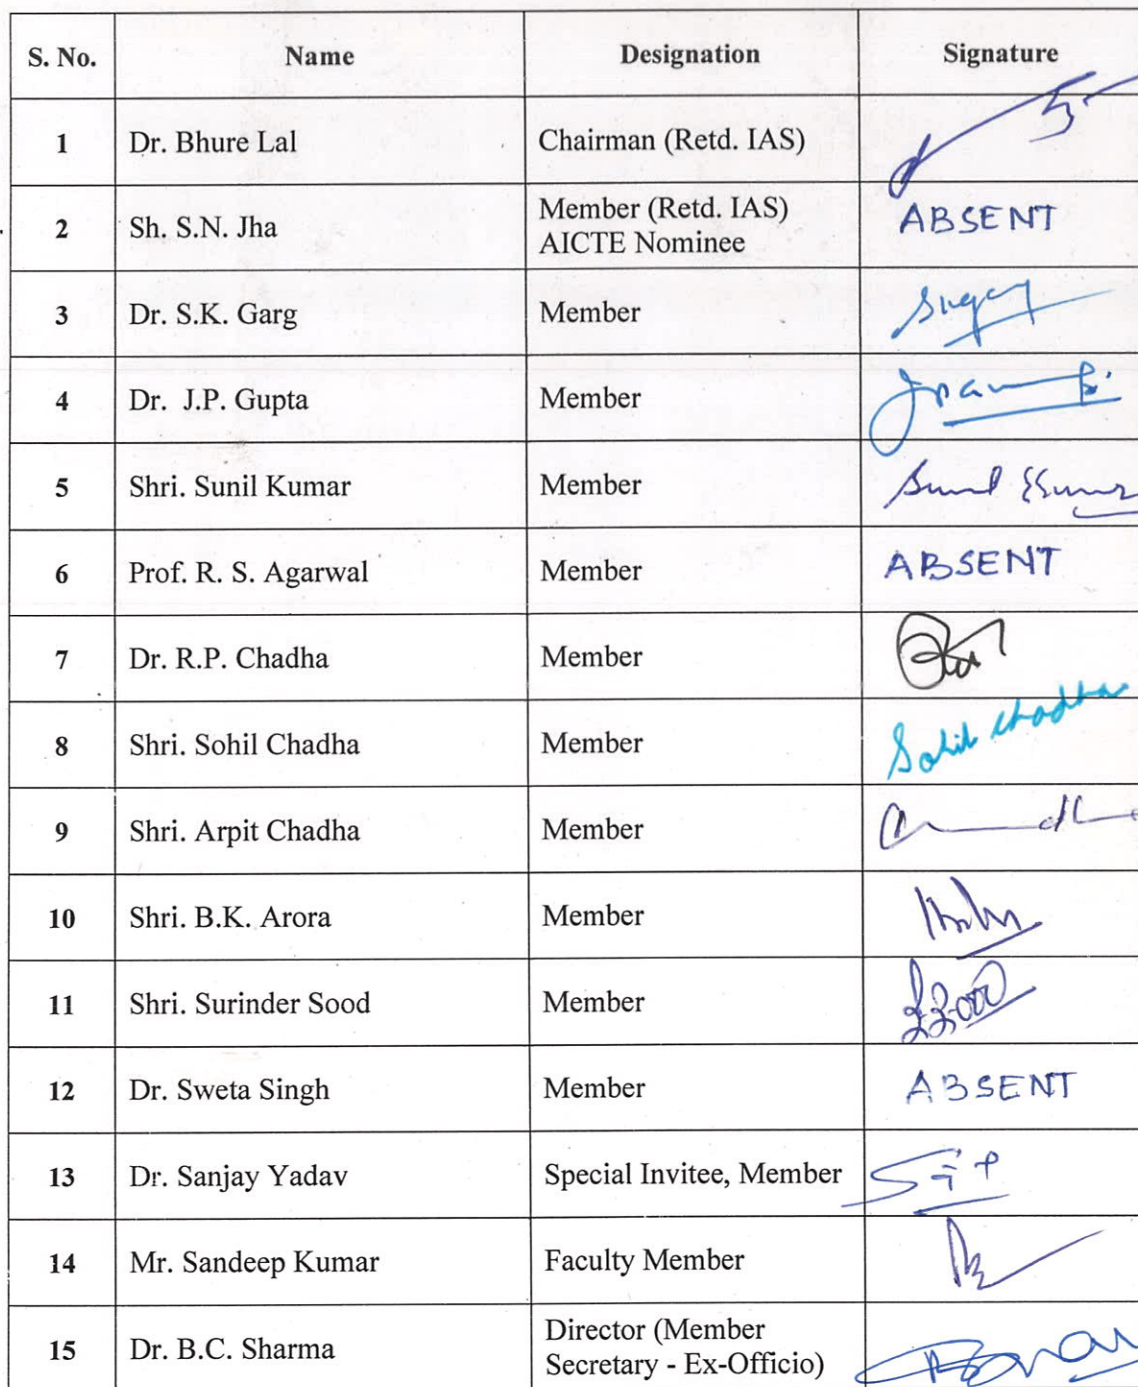 S. No. Name Designation Signature
1 Dr. Bhure Lal Chairman (Retd. IAS)
2 Sh. S.N. Jha Member (Retd. IAS) ABSENT
AICTE Nominee
3 Dr. S.K. Garg Member
4 Dr. J.P. Gupta Member
5 Shri. Sunil Kumar Member Sunil Kumar
6 Prof. R. S. Agarwal Member ABSENT
7 Dr. R.P. Chadha Member
8 Shri. Sohil Chadha Member Sohil Chadha
9 Shri. Arpit Chadha Member
10 Shri. B.K. Arora Member
11 Shri. Surinder Sood Member
12 Dr. Sweta Singh Member ABSENT
13 Dr. Sanjay Yadav Special Invitee, Member
14 Mr. Sandeep Kumar Faculty Member
15 Dr. B.C. Sharma Director (Member
Secretary - Ex-Officio)